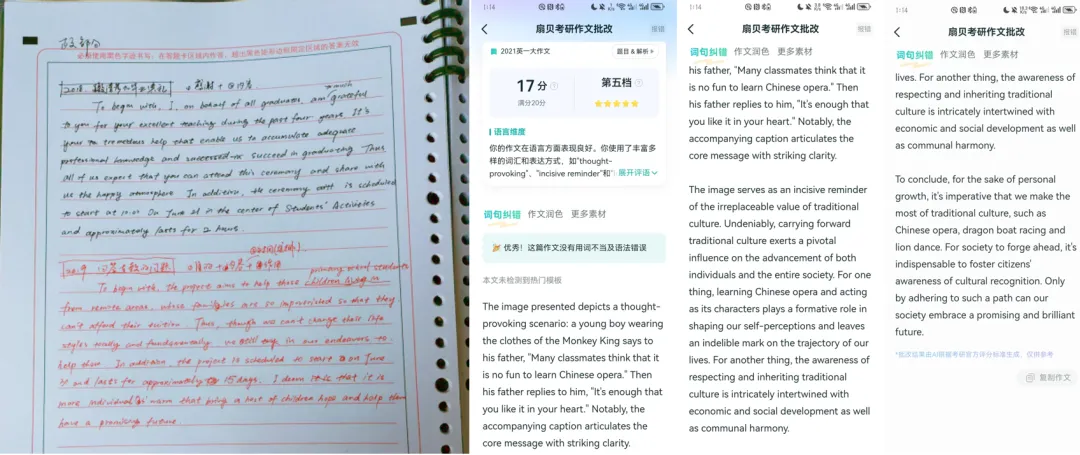 必须使用黑色字迹书写，在答题卡区域内作答，超出黑色矩形边框限定区域的答案无效
To begin with, I, on behalf of all graduates, am grateful
to you for your excellent teaching during the past four years. It's
your tremetous help that enable us to accumulate adequate
professional knowledge and succeed in graduating. Thus
all of us expect that you can attend this ceremony and share with
us the happy atmosphere. In addition, the ceremony is scheduled
to start at 10:00 On June 21 in the center of Students' Activities
and approximately lasts for 2 hours.
To begin with, the project aims to help those
primary school students
from remote areas, whose families are so that they
can't afford their tuition. Thus, though we can't change their life
styles totally and fundamentally, we still try in our endeavors to
help them. In addition, the project is scheduled to start on June
and lasts for approximately 15 days. I deem that it is
more warm that bring a host of children hope and help them
have a promising future.
1:14
扇贝考研作文批改
报错
2021英一大作文
题目 & 解析 >
17分
满分20分
第五档
语言维度
你的作文在语言方面表现良好。你使用了丰富多
样的词汇和表达方式，如"thought-
provoking"、"incisive reminder"和"
展开评语
词句纠错 作文润色 更多素材
优秀！这篇作文没有用词不当及语法错误
本文未检测到热门模板
The image presented depicts a thought-
provoking scenario: a young boy wearing
the clothes of the Monkey King says to
his father, "Many classmates think that it
is no fun to learn Chinese opera." Then
his father replies to him, "It's enough that
you like it in your heart." Notably, the
accompanying caption articulates the
core message with striking clarity.
1:14
扇贝考研作文批改
报错
词句纠错 作文润色 更多素材
his father, "Many classmates think that it
is no fun to learn Chinese opera." Then
his father replies to him, "It's enough that
you like it in your heart." Notably, the
accompanying caption articulates the
core message with striking clarity.
The image serves as an incisive reminder
of the irreplaceable value of traditional
culture. Undeniably, carrying forward
traditional culture exerts a pivotal
influence on the advancement of both
individuals and the entire society. For one
thing, learning Chinese opera and acting
as its characters plays a formative role in
shaping our self-perceptions and leaves
an indelible mark on the trajectory of our
lives. For another thing, the awareness of
respecting and inheriting traditional
culture is intricately intertwined with
economic and social development as well
as communal harmony.
1:14
扇贝考研作文批改
报错
词句纠错 作文润色 更多素材
lives. For another thing, the awareness of
respecting and inheriting traditional
culture is intricately intertwined with
economic and social development as well
as communal harmony.
To conclude, for the sake of personal
growth, it's imperative that we make the
most of traditional culture, such as
Chinese opera, dragon boat racing and
lion dance. For society to forge ahead, it's
indispensable to foster citizens'
awareness of cultural recognition. Only
by adhering to such a path can our
society embrace a promising and brilliant
future.
*批改结果由AI根据考研官方评分标准生成，仅供参考
复制作文